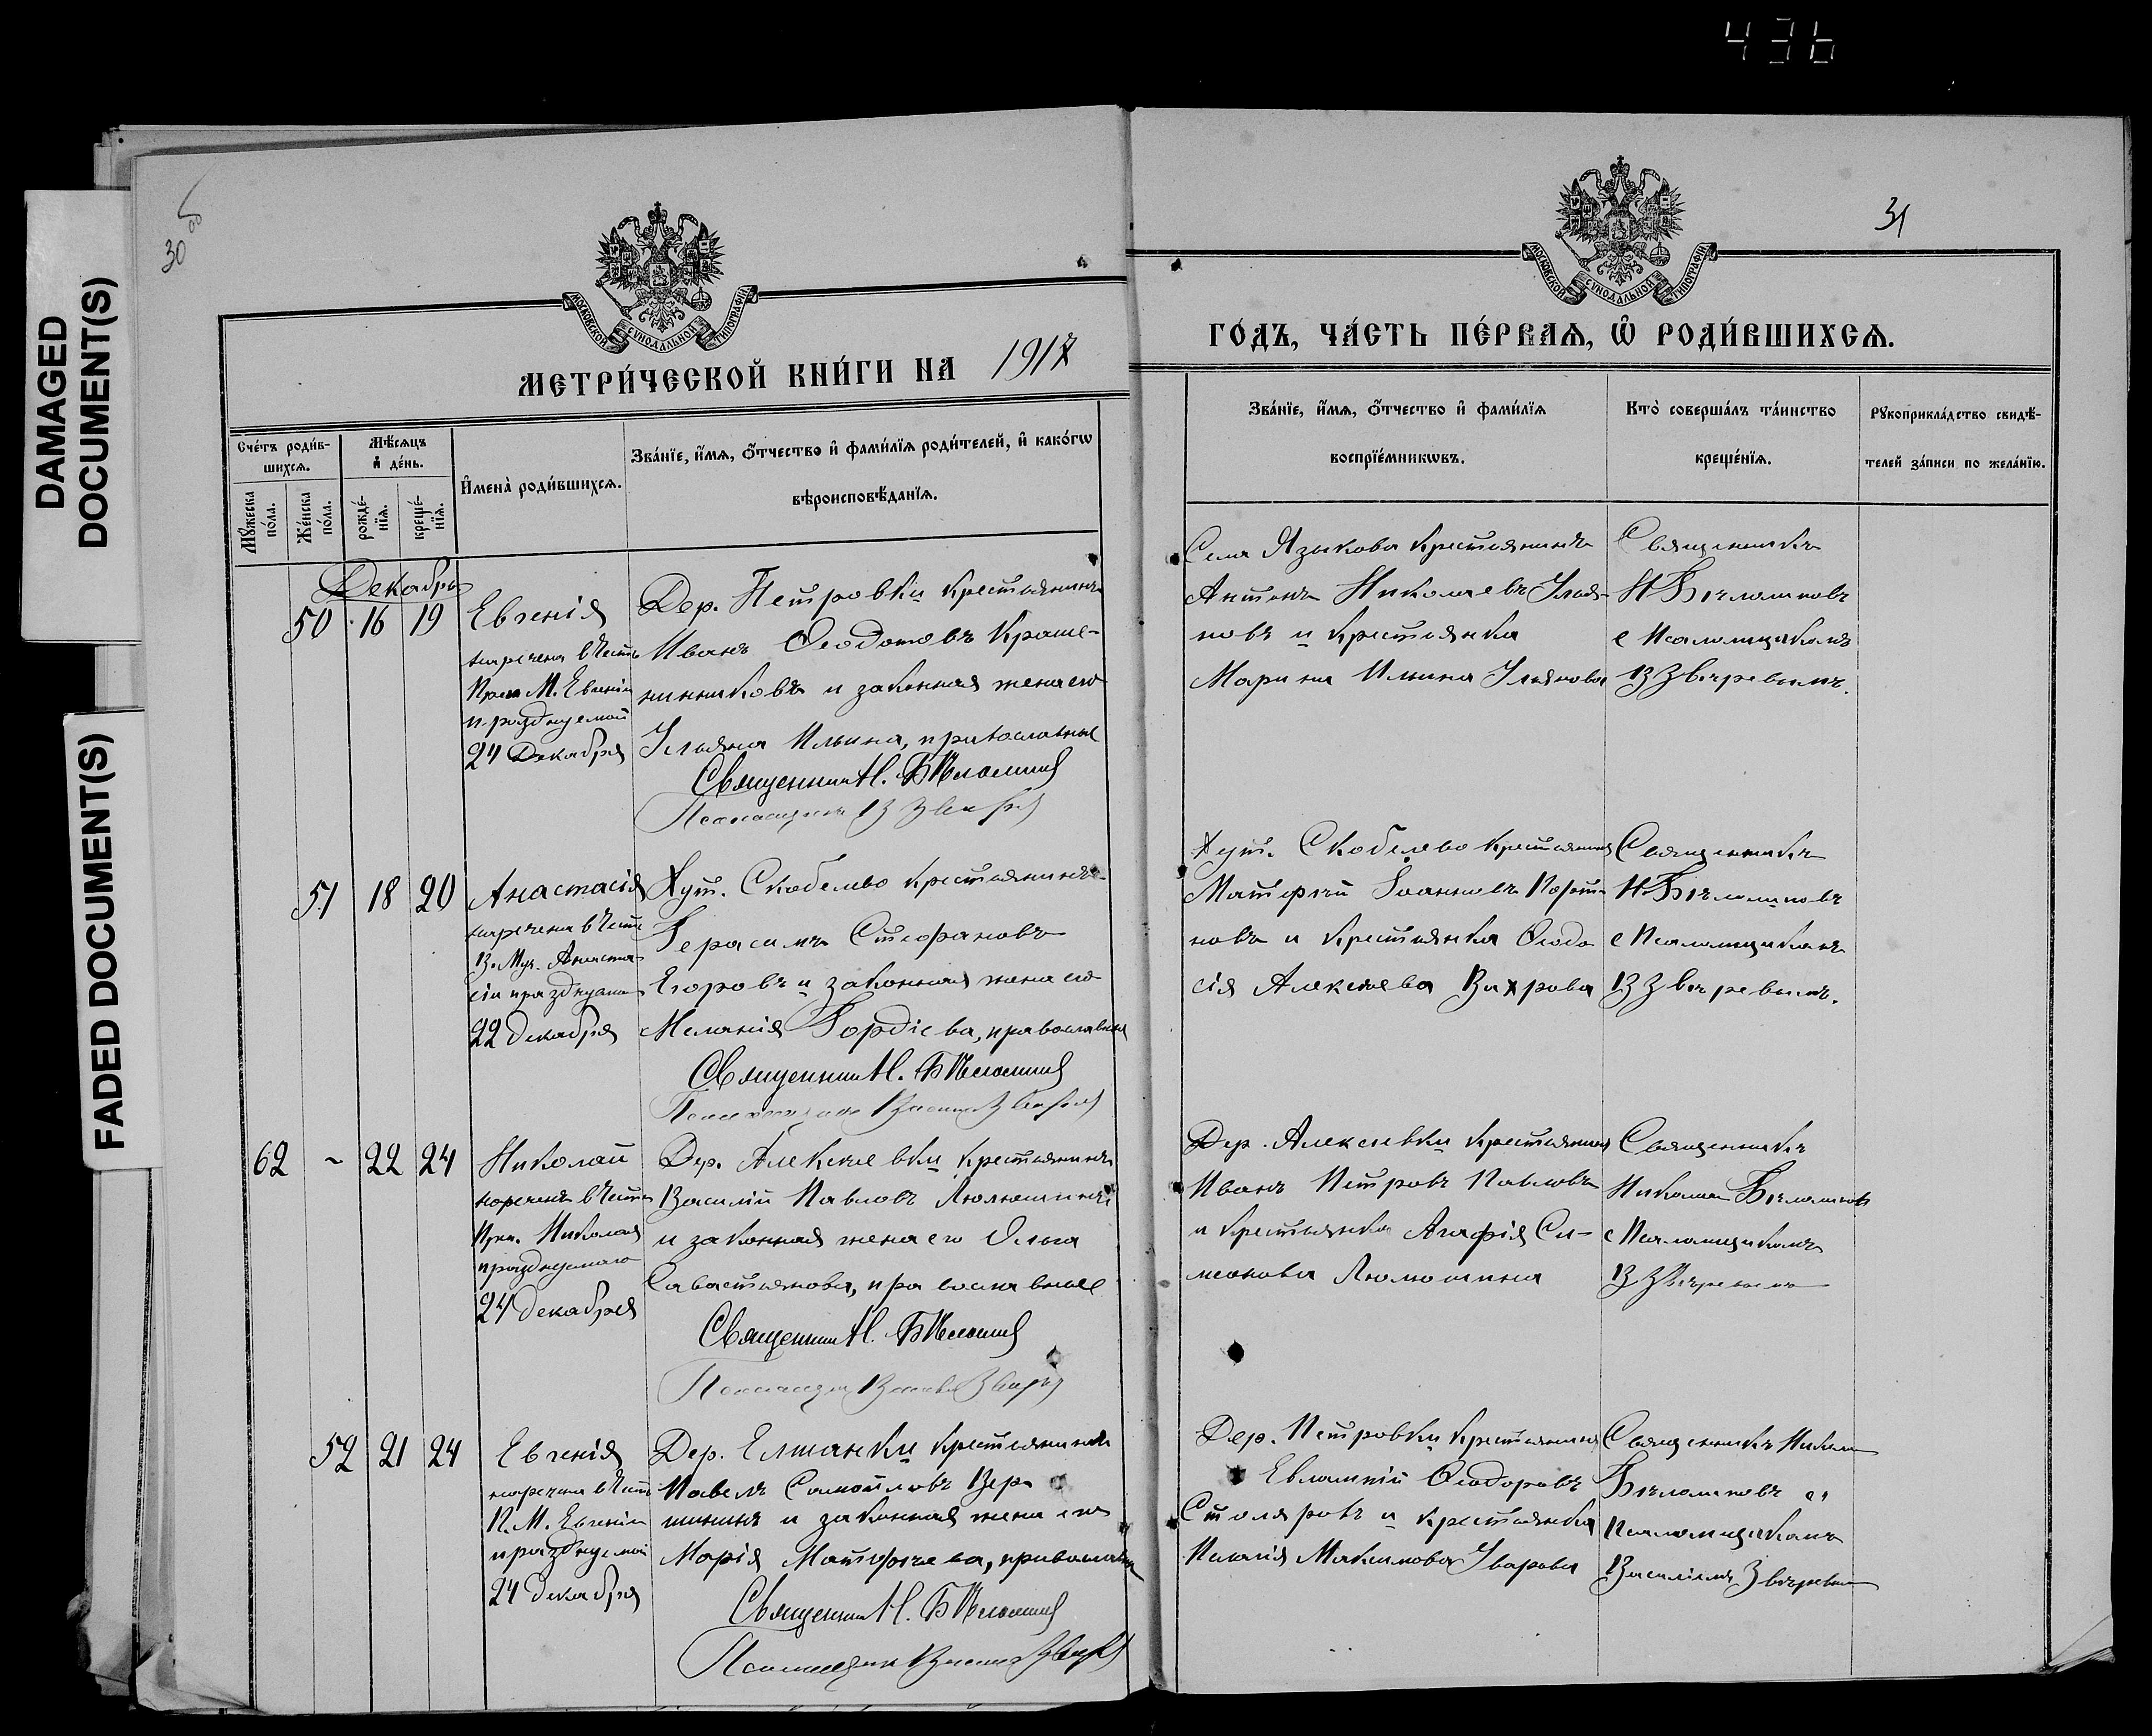 436
DAMAGED
DOCUMENT(S)
FADED DOCUMENT(S)
30
МОСКОВСКОЙ СѴНОДАЛЬНОЙ ТИПОГРАФІИ
МЕТРИ́ЧЕСКОЙ КНИ́ГИ НА 1917
Сче́тъ роди́в-
шихсѧ.
Мѣ́сѧцъ
и҆ де́нь.
Мꙋ́жеска
по́ла.
Же́нска
по́ла.
рожде́-
нїѧ.
креще́-
нїѧ.
И҆мена̀ роди́вшихсѧ.
Зва́нїе, и҆́мѧ, ѻ҆́тчество и҆ фами́лїѧ роди́телей, и҆ како́гѡ
вѣроисповѣ́данїѧ.
Декабрь
50 16 19
Евгенія
наречена в честь
Преп М. Евгеніи
празднуемой
24 Декабря
Дер. Петровки крестьянинъ
Иванъ Ѳеодотовъ Краше-
нинниковъ и законная жена его
Ульяна Ильина, православные
Священник Н.
Псаломщикъ В Зверев
51 18 20
Анастасія
наречена в честь
В. Муч. Анаста-
сіи празднуем
22 декабря
Хут. Скобелево крестьянинъ
Герасимъ Стефановъ
Егоровъ и законная жена его
Меланія Гордіева, православные
Священник Н.
Псаломщикъ Зверев
62 ~ 22 24
Николай
нареченъ в честь
Прп. Николая
празднуемаго
24 декабря
Дер. Алексеевки крестьянинъ
Василій Павловъ Люлюшинъ
и законная жена его Ольга
Савастьянова, православные
Священник Н.
Псаломщик Зверев
52 21 24
Евгенія
наречена в честь
П. М. Евгеніи
празднуемой
24 декабря
Дер. Елшанки крестьянинъ
Павелъ Самойловъ Вер-
шининъ и законная жена его
Марія Матфеева, православные
Священник Н.
Псаломщик Зверев
31
МОСКОВСКОЙ СѴНОДАЛЬНОЙ ТИПОГРАФІИ
ГО́ДЪ, ЧА́СТЬ ПЕ́РВАѦ, Ѡ҆ РОДИ́ВШИХСѦ.
Зва́нїе, и҆́мѧ, ѻ҆́тчество и҆ фами́лїѧ
воспрїе́мникѡвъ.
Кто̀ соверша́лъ та́инство
креще́нїѧ.
Рꙋкоприкла́дство свидѣ́-
телей за́писи по жела́нїю.
Села Языкова крестьянинъ
Антонъ Николаевъ Улья-
новъ и крестьянка
Марина Ильина Ульянова
Священникъ
Н
с Псаломщикомъ
В Звѣревымъ.
Хут. Скобелево крестьянинъ
Матфей Іоанновъ
новъ и крестьянка Ѳеодо
сія Алексеева Вихрова
Священникъ
Н
с Псаломщикомъ
В Звѣревымъ.
Дер. Алексеевки крестьянинъ
Иванъ Петровъ Павловъ
и крестьянка Агафія Си-
меонова Люлюшина
Священникъ
Николай
с Псаломщикомъ
В Звѣревымъ
Дер. Петровки крестьянинъ
Евлампій Ѳеодоровъ
Столяровъ и крестьянка
Пелагія Максимова Уварова
Священникъ Николай
Псаломщикомъ
Василіемъ Звѣревым